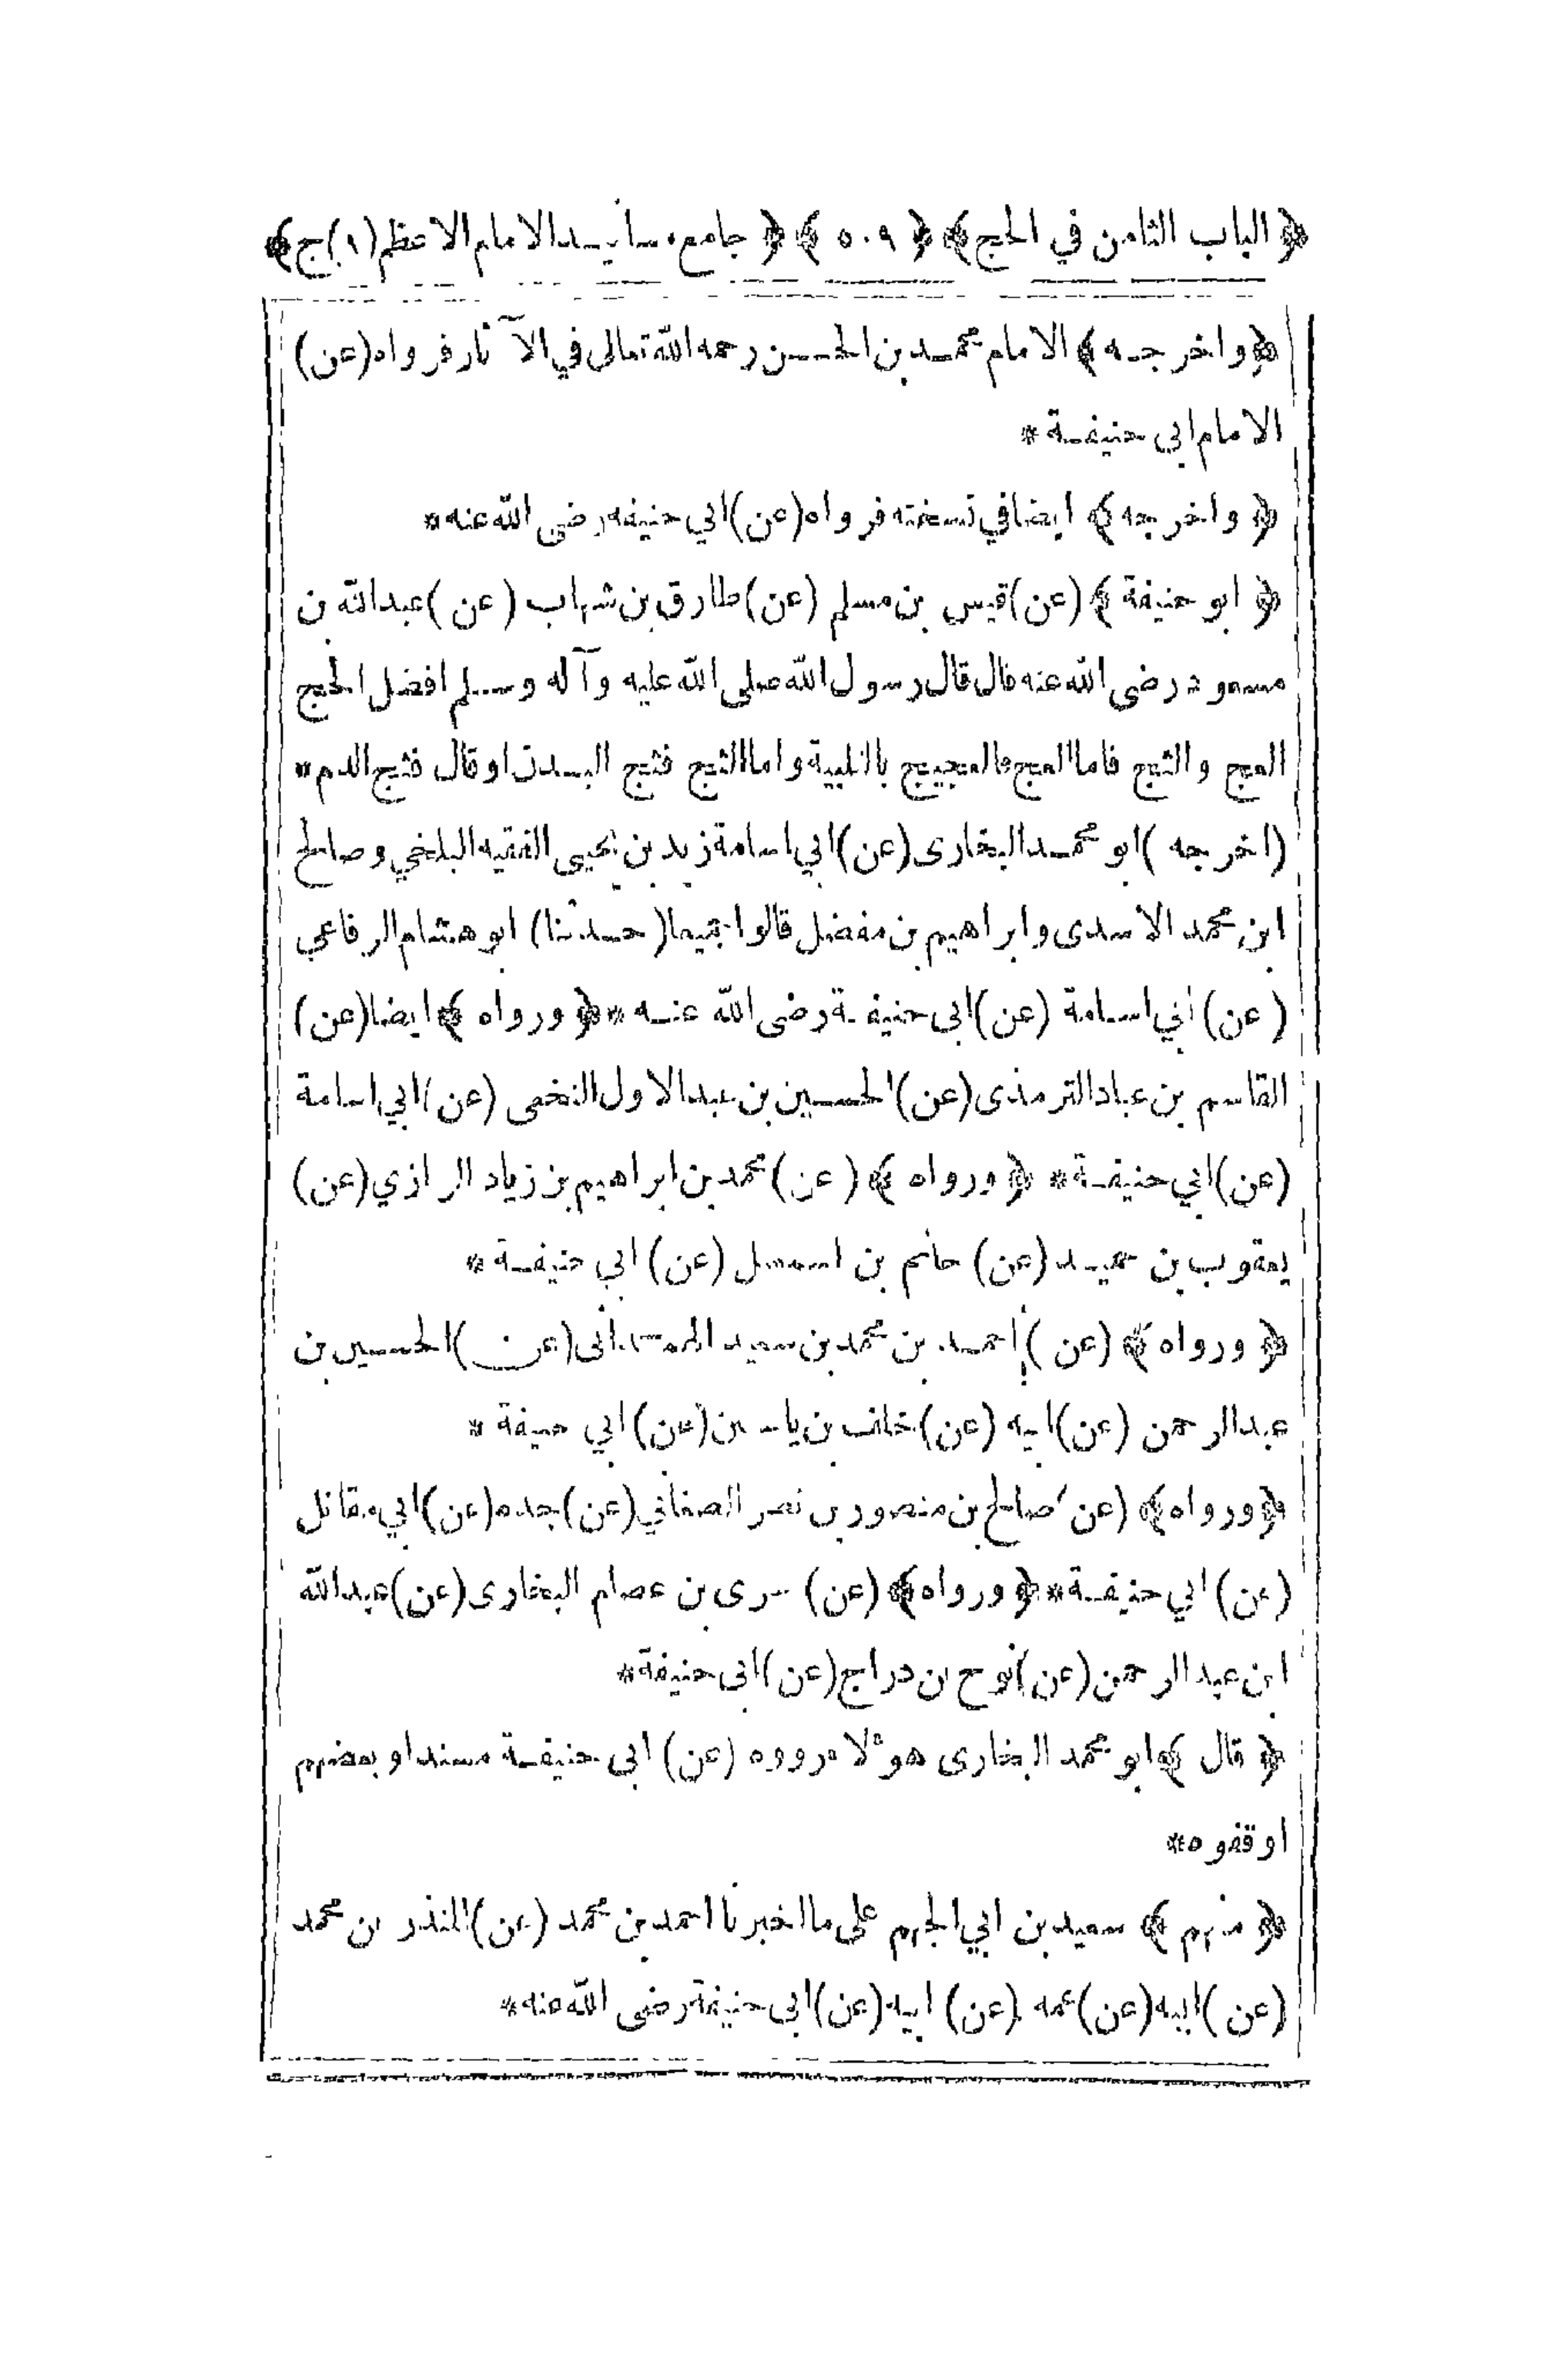 ﴿ الباب الثامن في الحج ﴾ ﴿ ٥٠٩ ﴾ ﴿ جامع مسانيد الامام الاعظم (١) ج ﴾
﴿ واخرجه ﴾ الامام محمد بن الحسن رحمه الله تعالى في الآثار فرواه (عن)
الامام ابي حنيفة *
﴿ واخرجه ﴾ ايضا في نسخته فرواه (عن) ابي حنيفه رضى الله عنه *
﴿ ابو حنيفة ﴾ (عن) قيس بن مسلم (عن) طارق بن شهاب (عن) عبد الله بن
مسعود رضى الله عنه قال قال رسول الله صلى الله عليه وآله وسلم افضل الحج
العج والثج فاما العج فالعجيج بالتلبية واما الثج فثج البدن او قال فثج الدم *
(اخرجه) ابو محمد البخارى (عن) ابي اسامة زيد بن يحيى الفقيه البلخي وصالح
ابن محمد الاسدى وابراهيم بن مفضل قالوا جميعا (حدثنا) ابو هشام الرفاعي
(عن) ابي اسامة (عن) ابى حنيفة رضى الله عنه * ﴿ ورواه ﴾ ايضا (عن)
القاسم بن عباد الترمذى (عن) الحسين بن عبد الاول النخعى (عن) ابي اسامة
(عن) ابي حنيفة * ﴿ ورواه ﴾ (عن) محمد بن ابراهيم بن زياد الرازي (عن)
يعقوب بن حميد (عن) حاتم بن اسمعيل (عن) ابي حنيفة *
﴿ ورواه ﴾ (عن) احمد بن محمد بن سعيد الهمدانى (عن) الحسين بن
عبد الرحمن (عن) ابيه (عن) خلف بن ياسين (عن) ابي حنيفة *
﴿ ورواه ﴾ (عن) صالح بن منصور بن نصر الصغاني (عن) جده (عن) ابي مقاتل
(عن) ابي حنيفة * ﴿ ورواه ﴾ (عن) سرى بن عصام البخارى (عن) عبد الله
ابن عبد الرحمن (عن) نوح بن دراج (عن) ابى حنيفة *
﴿ قال ﴾ ابو محمد البخارى هؤلاء رووه (عن) ابى حنيفة مسندا و بعضهم
اوقفوه *
﴿ منهم ﴾ سعيد بن ابي الجهم على ما اخبرنا احمد بن محمد (عن) المنذر بن محمد
(عن) ابيه (عن) عمه (عن) ابيه (عن) ابى حنيفة رضى الله عنه *